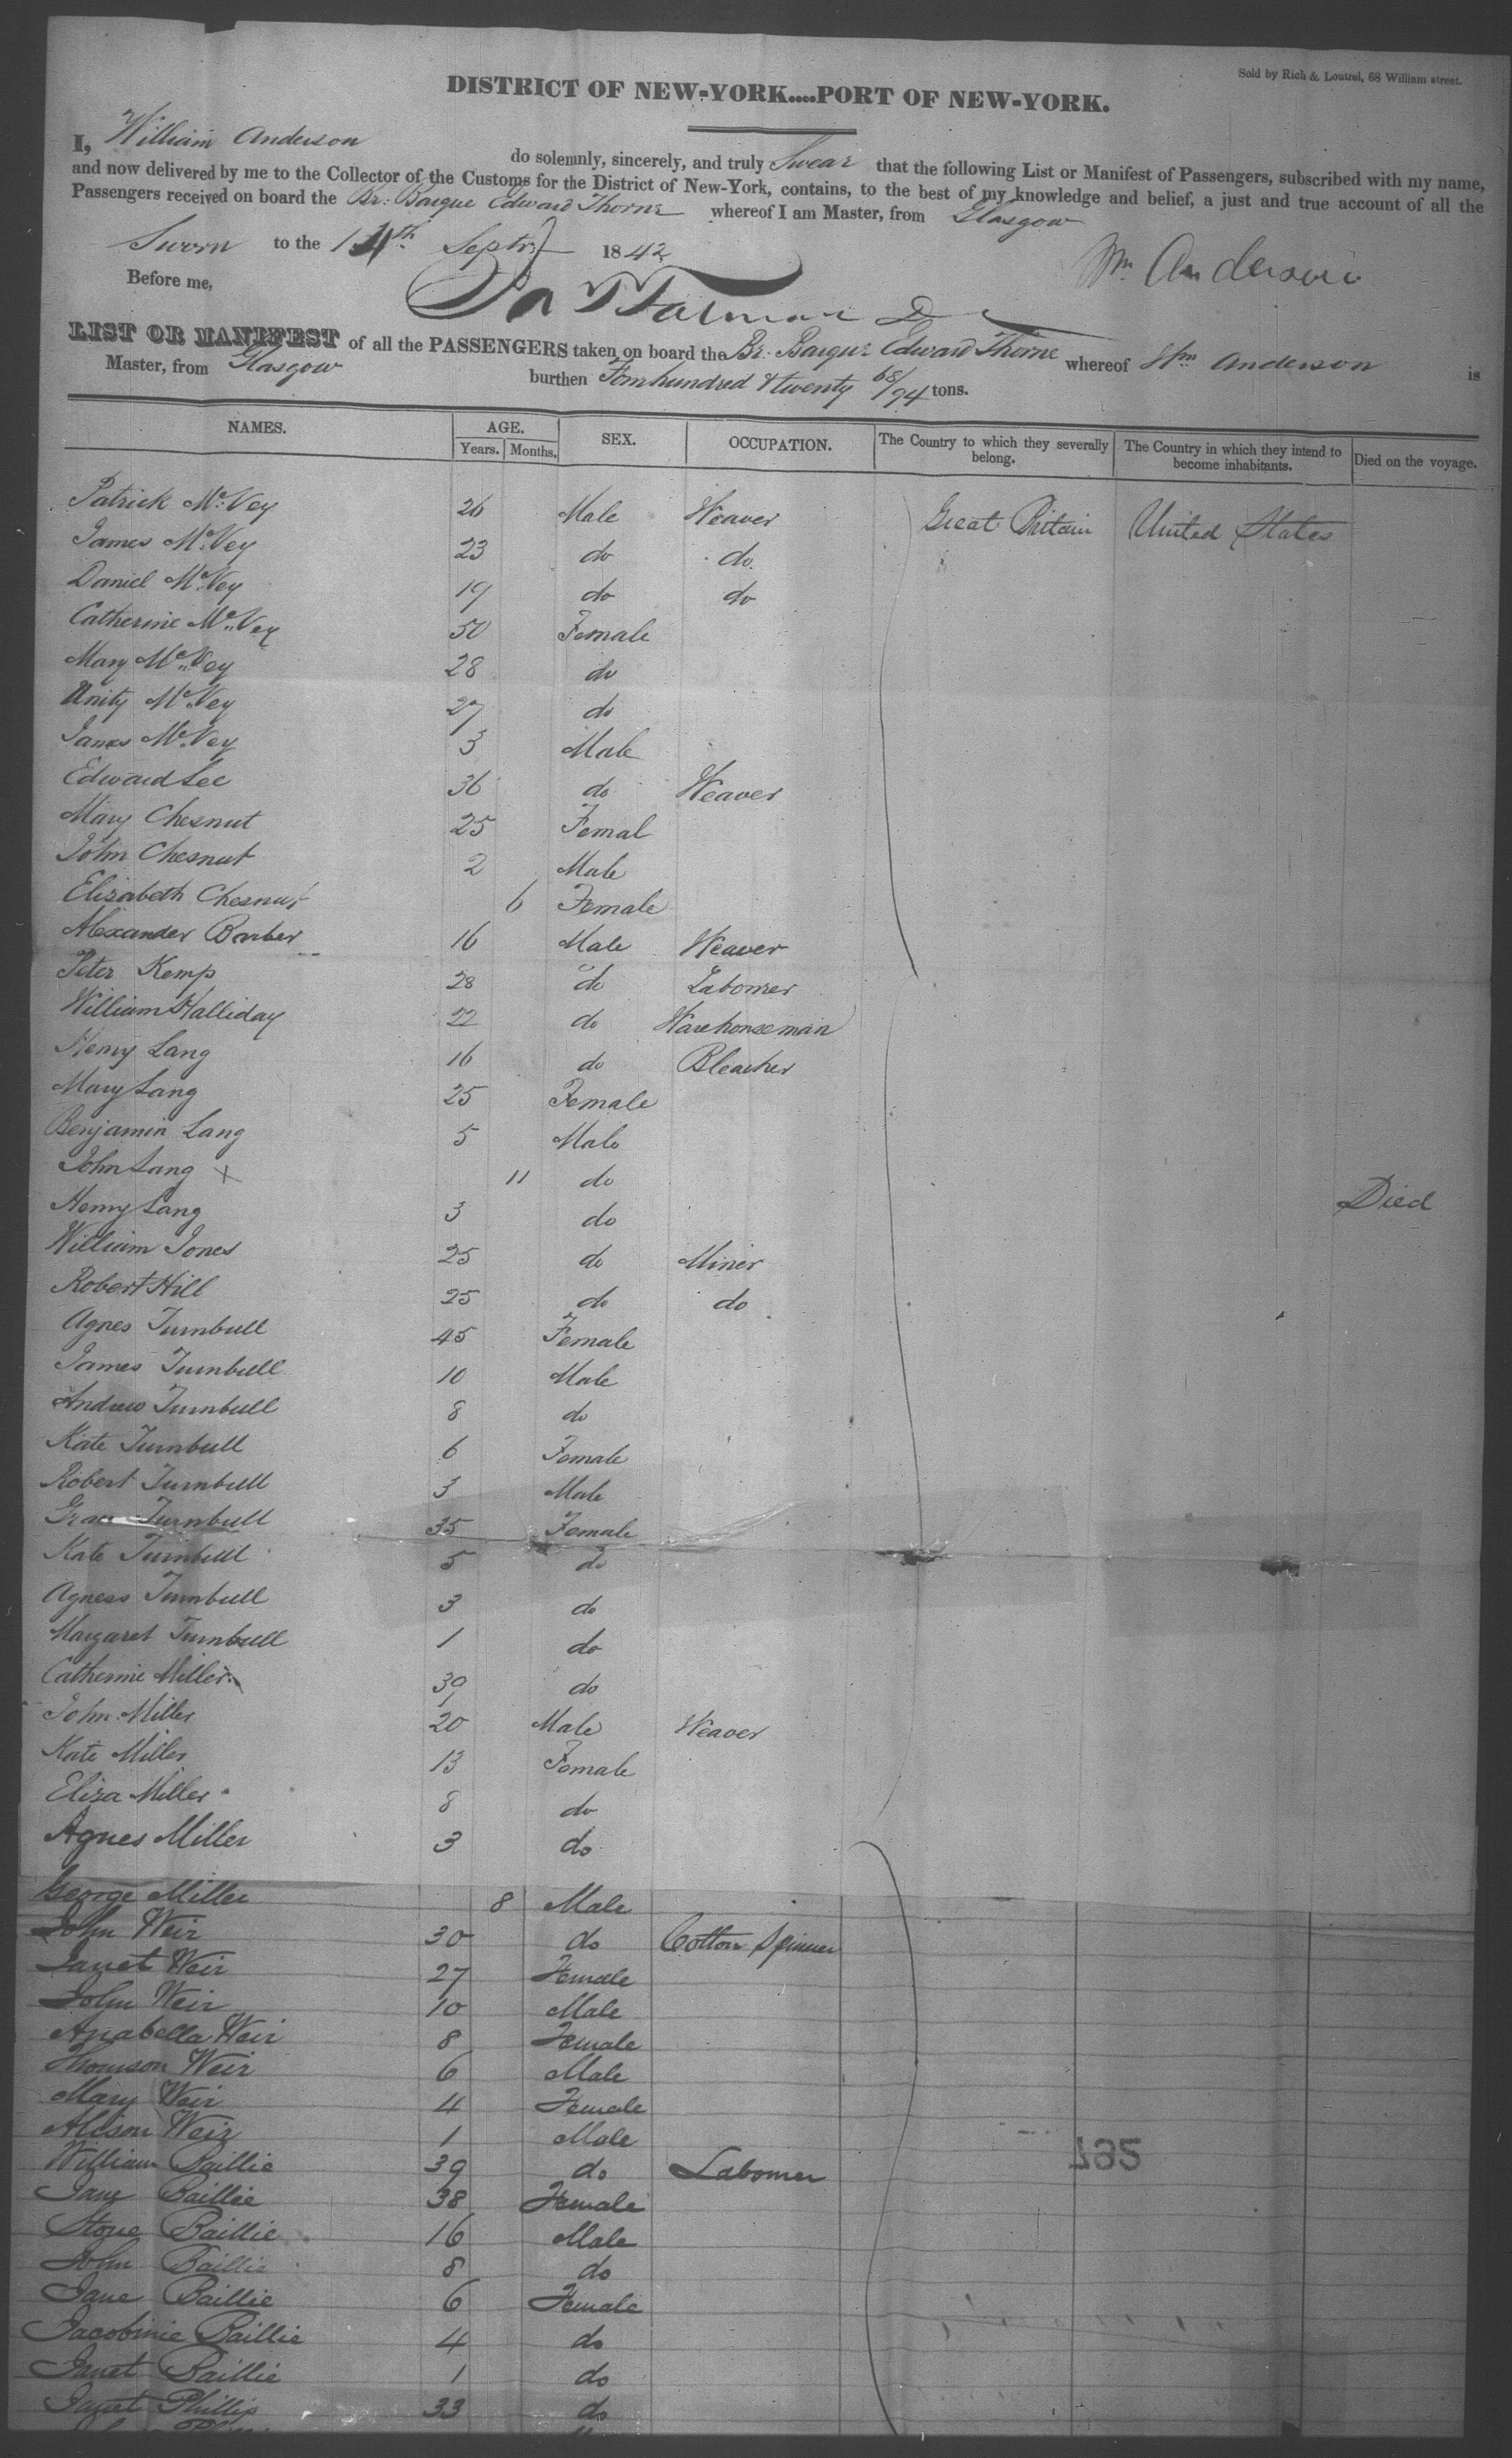 Sold by Rich & Loutrel, 68 William street.
DISTRICT OF NEW-YORK....PORT OF NEW-YORK.
I, William Anderson do solemnly, sincerely, and truly Swear that the following List or Manifest of Passengers, subscribed with my name,
and now delivered by me to the Collector of the Customs for the District of New-York, contains, to the best of my knowledge and belief, a just and true account of all the
Passengers received on board the Br: Barque Edward Thorne whereof I am Master, from Glasgow
Sworn to the 14th Septr 1842 Wm Anderson
Before me,
LIST OR MANIFEST of all the PASSENGERS taken on board the Br. Barque Edward Thorne whereof Wm Anderson is
Master, from Glasgow burthen Four hundred & twenty 68/94 tons.
NAMES. AGE. Years. Months. SEX. OCCUPATION. The Country to which they severally belong. The Country in which they intend to become inhabitants. Died on the voyage.
Patrick McVey 26 Male Weaver Great Britain United States
James McVey 23 do do
Daniel McVey 19 do do
Catherine McVey 50 Female
Mary McVey 28 do
Unity McVey 27 do
James McVey 3 Male
Edward Lee 36 do Weaver
Mary Chesnut 25 Femal
John Chesnut 2 Male
Elizabeth Chesnut 6 Female
Alexander Barber 16 Male Weaver
Peter Kemp 28 do Labourer
William Halliday 22 do Warehouseman
Henry Lang 16 do Bleacher
Mary Lang 25 Female
Benjamin Lang 5 Male
John Lang x 11 do Died
Henry Lang 3 do
William Jones 25 do Miner
Robert Hill 25 do do
Agnes Turnbull 45 Female
James Turnbull 10 Male
Andrew Turnbull 8 do
Kate Turnbull 6 Female
Robert Turnbull 3 Male
Grace Turnbull 35 Female
Kate Turnbull 5 do
Agness Turnbull 3 do
Margaret Turnbull 1 do
Catherine Miller 39 do
John Miller 20 Male Weaver
Kate Miller 13 Female
Eliza Miller 8 do
Agnes Miller 3 do
George Miller 8 Male
John Weir 30 do Cotton Spinner
Janet Weir 27 Female
John Weir 10 Male
Anabella Weir 8 Female
Thomson Weir 6 Male
Mary Weir 4 Female
Alison Weir 1 Male
William Baillie 39 do Labourer
Jane Baillie 38 Female
Stone Baillie 16 Male
John Baillie 8 do
Jane Baillie 6 Female
Jacobinie Baillie 4 do
Janet Baillie 1 do
Janet Phillip 33 do